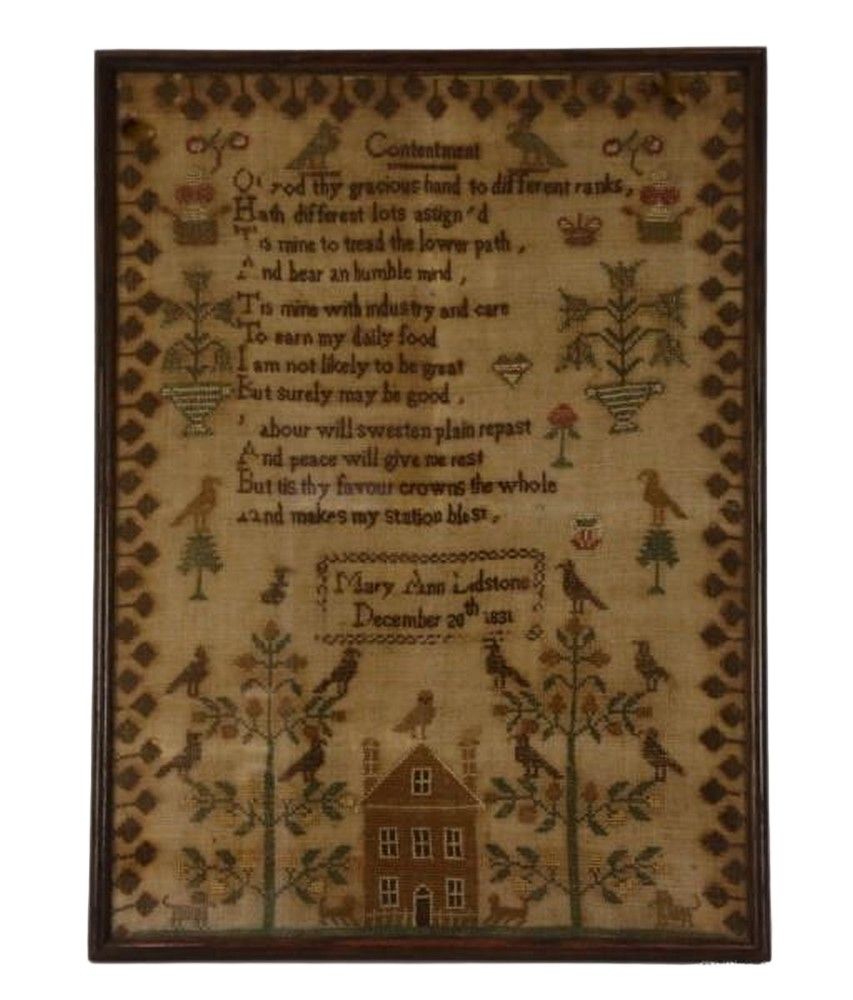 Contentment
O' God thy gracious hand to different ranks,
Hath different lots assign'd
Tis mine to tread the lower path,
And bear an humble mind,
Tis mine with industry and care
To earn my daily food
I am not likely to be great
But surely may be good,
Labour will sweeten plain repast
And peace will give me rest
But tis thy favour crowns the whole
And makes my station blest,
Mary Ann
December 20th 1831